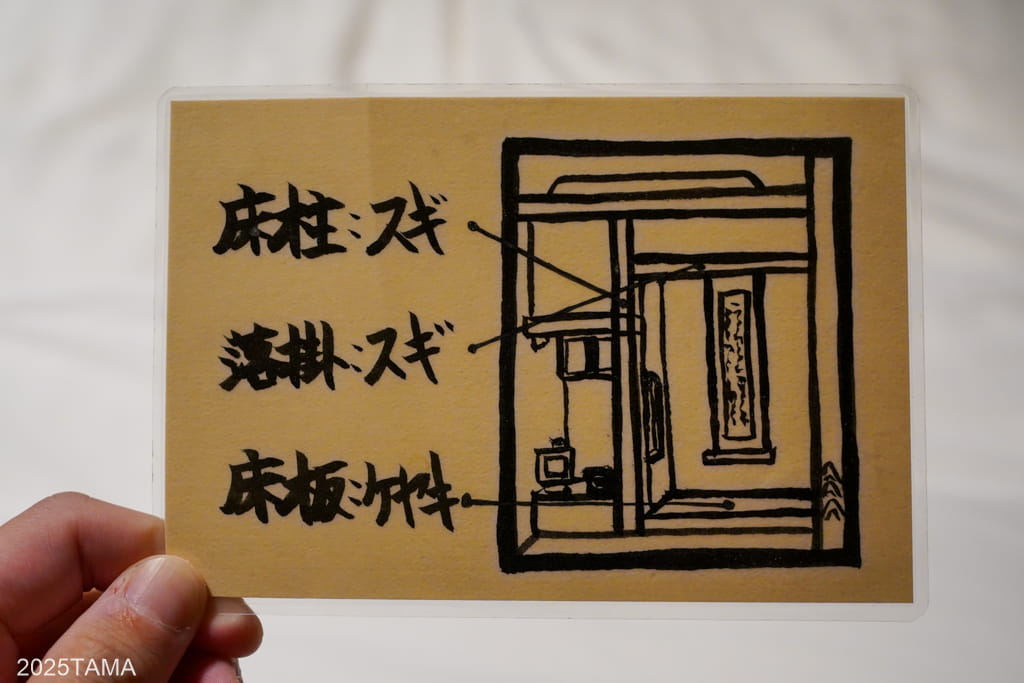 床柱:スギ
落掛:スギ
床板:ケヤキ
2025TAMA